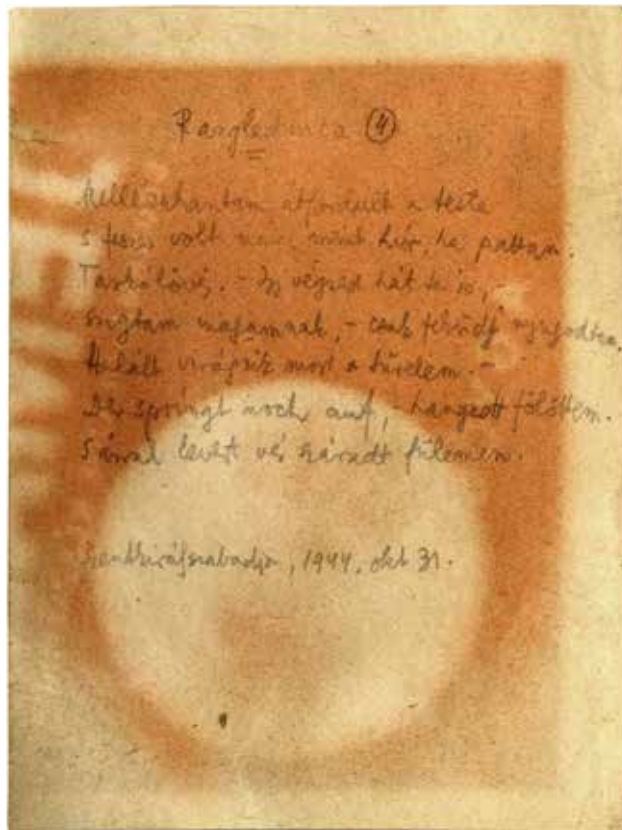 Razglednica (4)
Mellézuhantam átfordult a teste
s feszes volt már, mint húr, ha pattan.
Tarkólövés. - Így végzed hát te is, -
súgtam magamnak, - csak feküdj nyugodtan.
Halált virágzik most a türelem. -
Der springt noch auf, - hangzott fölöttem.
Sárral kevert vér száradt fülemen.
Szentkirályszabadja, 1944. okt 31.